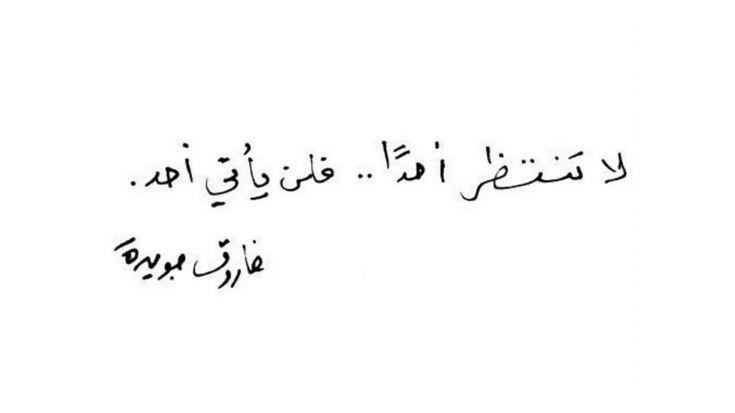 لا تنتظر أحدًا.. فلن يأتي أحد.
فاروق جويدة